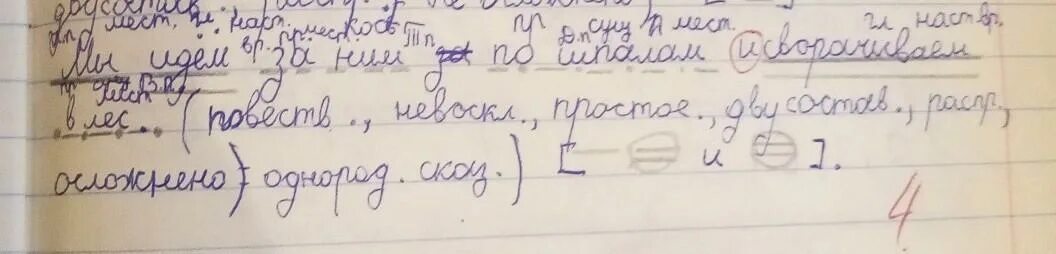 мест. гл. наст. вр. пр. мест. косв. пр Д.п сущ мест. гл наст вр.
Мы идем за ним по шпалам и сворачиваем
в лес. (повеств., невоскл., простое., двусостав., распр.,
осложнено однород. сказ.) [ и ].
4